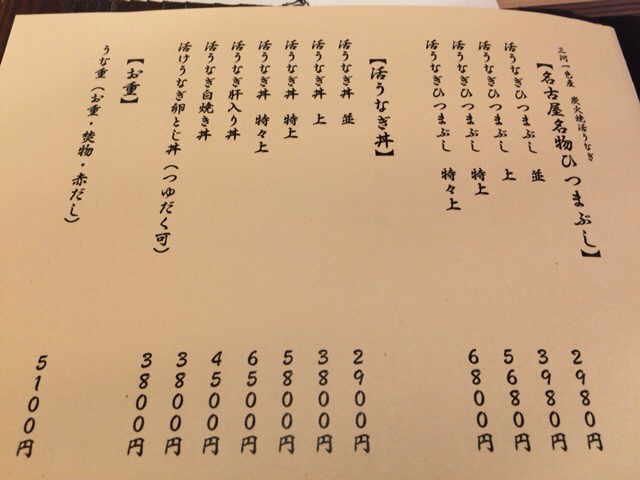 三河一色産 炭火焼活うなぎ
【名古屋名物ひつまぶし】
活うなぎひつまぶし 並 2980円
活うなぎひつまぶし 上 3980円
活うなぎひつまぶし 特上 5680円
活うなぎひつまぶし 特々上 6800円
【活うなぎ丼】
活うなぎ丼 並 2900円
活うなぎ丼 上 3800円
活うなぎ丼 特上 5800円
活うなぎ丼 特々上 6500円
活うなぎ肝入り丼 4500円
活うなぎ白焼き丼 3800円
活けうなぎ卵とじ丼（つゆだく可） 3800円
【お重】
うな重（お重・焚物・赤だし） 5100円